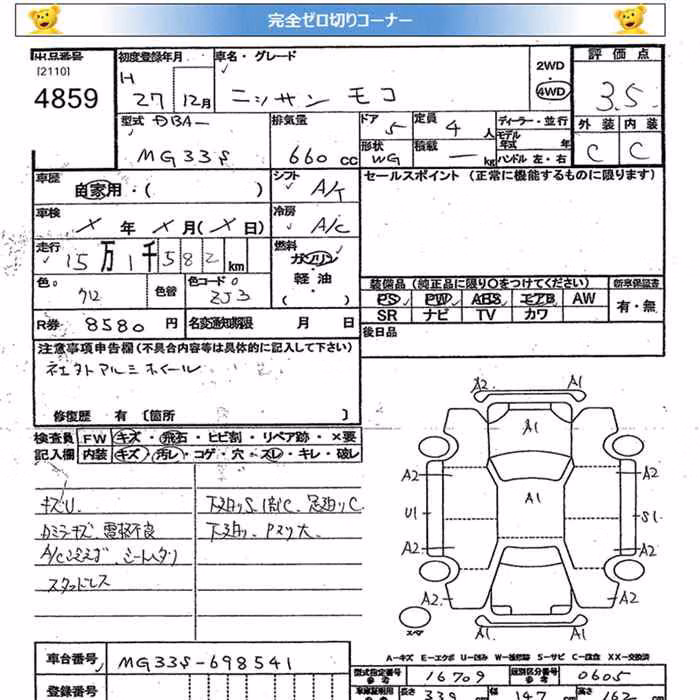 完全ゼロ切りコーナー
出品番号
[2110]
4859
初度登録年月
H 27 12月
車名・グレード
ニッサン モコ
2WD
・
4WD
評価点
3.5
型式 DBA-
MG33S
排気量
660 cc
ドア 5
定員 4 人
ディーラー・並行
モデル年式 年
形状 WG
積載 — kg
ハンドル 左・右
外装 内装
C C
車歴
自家用・( )
シフト A/T
セールスポイント (正常に機能するものに限ります)
車検
X 年 X 月(X 日)
冷房 A/C
走行
15万1千582 km
燃料
ガソリン
軽油
( )
色
クロ
色替
色コード
ZJ3
装備品 (純正品に限り○をつけてください)
新車保証書
PS PW ABS エアB AW
有・無
SR ナビ TV カワ
R券 8580 円
名変通知期限 月 日
後日品
注意事項申告欄(不具合内容等は具体的に記入して下さい)
社外アルミホイール
修復歴 有 〔箇所 〕
検査員 FW キズ・飛石・ヒビ割・リペア跡・×要
記入欄 内装 キズ・汚レ・コゲ・穴・スレ・キレ・破レ
キズU.
下廻りS.
下廻り.
スタッドレス
A2 A1
A1
A2 A2
A1
U1 S1
A2 A2
A2 A2
スペア
A1 A1
A-キズ E-エクボ U-凹み W-補修跡 S-サビ C-腐食 XX-交換済
車台番号 MG33S-698541
型式指定番号 参考 16709
類別区分番号 参考 0605
登録番号
車庫証明用 参考 長さ 339 cm 幅 147 高さ 162